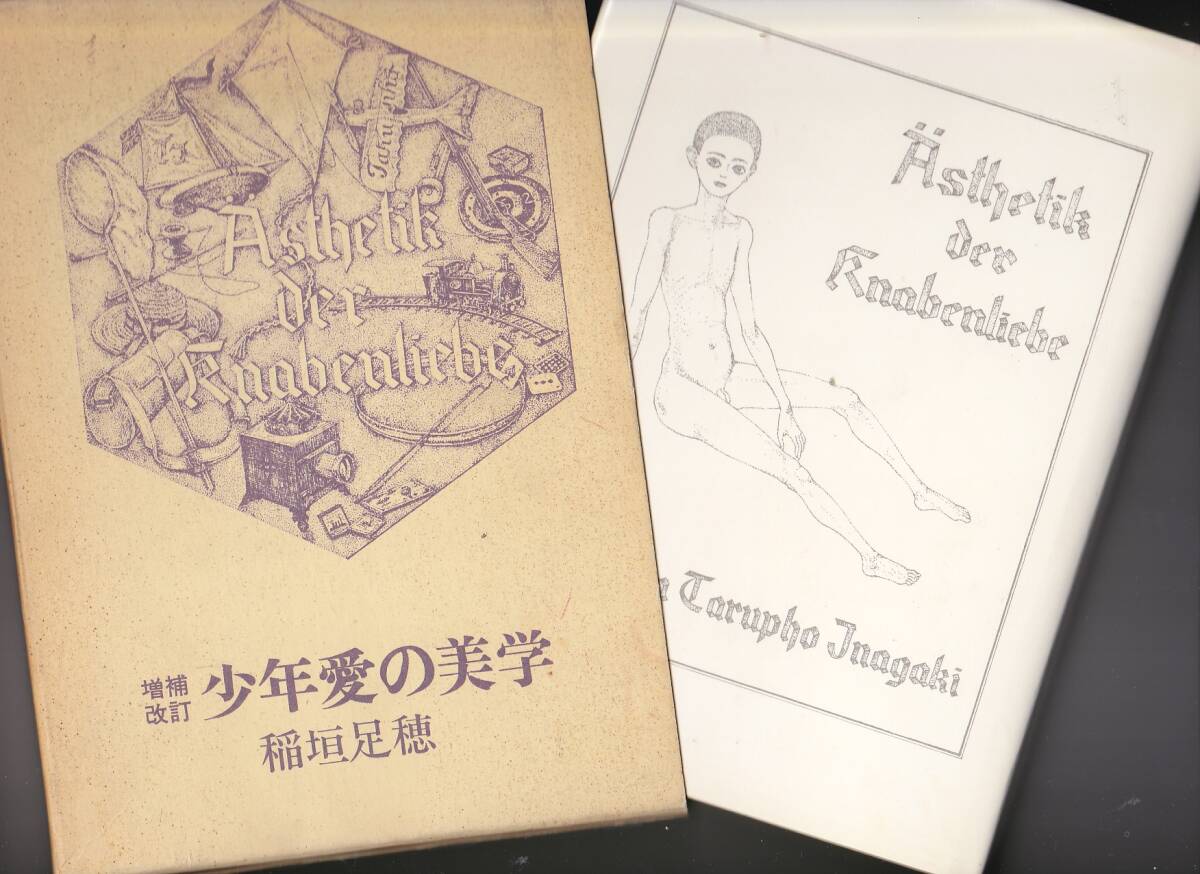 Tarupho
Ästhetik
der
Knabenliebe
増補
改訂
少年愛の美学
稲垣足穂
Ästhetik
der
Knabenliebe
Tarupho Inagaki